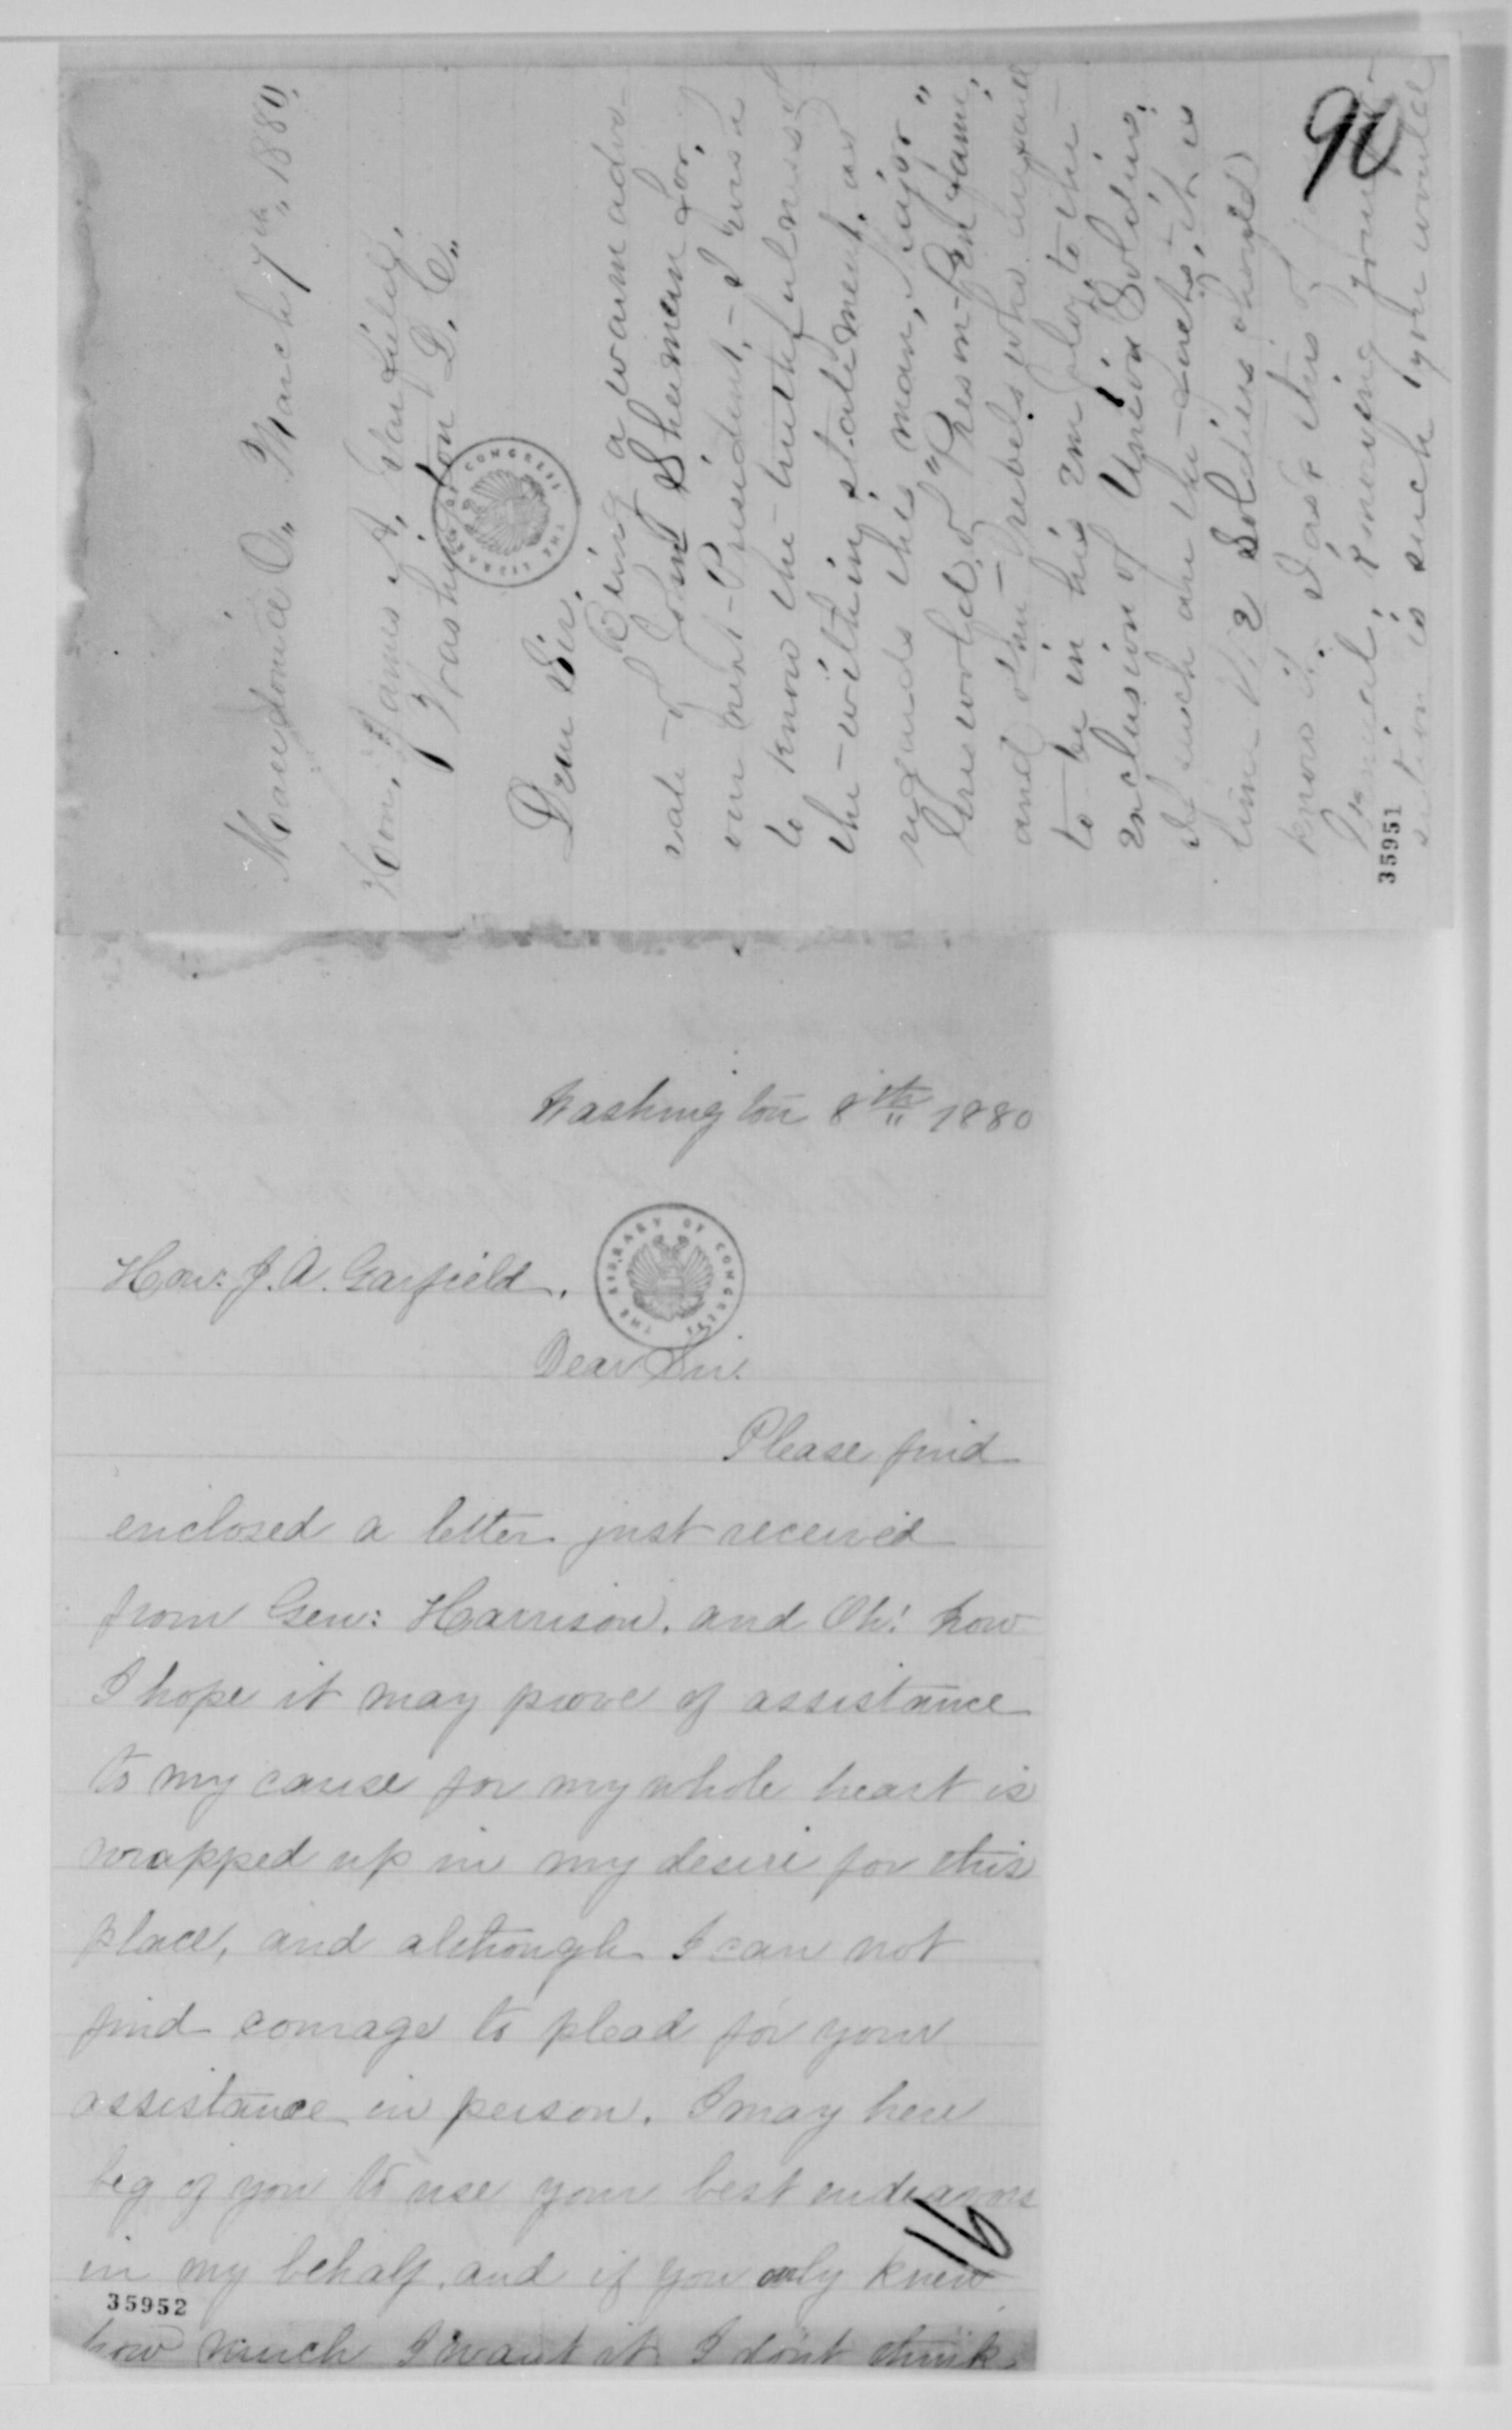 90
Macedonia O., March 7th, 1880,
Hon, James A, Garfield,
Washington D. C.,
Dear Sir,
Being a warm advo-
cate of John Sherman for,
our next President, I wish
to know the truthfulness of
the within, statement, as
regards this man, Major "
Griswold, of "Pres in-Penfame,"
and the rebels who are said
to be in his employ to the
exclusion of Union Soldiers,
If such are the facts, it is
time We Soldiers should
know it. I ask this of
General, knowing your
is such you would
35951
THE LIBRARY OF CONGRESS
Washington 8th 1880
Hon: J. A. Garfield.
THE LIBRARY OF CONGRESS
Dear Sir.
Please find
enclosed a letter just received
from Gen: Harrison. and Oh! how
I hope it may prove of assistance
to my cause for my whole heart is
wrapped up in my desire for this
place, and although I can not
find courage to plead for your
assistance in person. I may here
beg of you to use your best endeavors
in my behalf. and if you only knew
16
35952
how much I want it I don't think